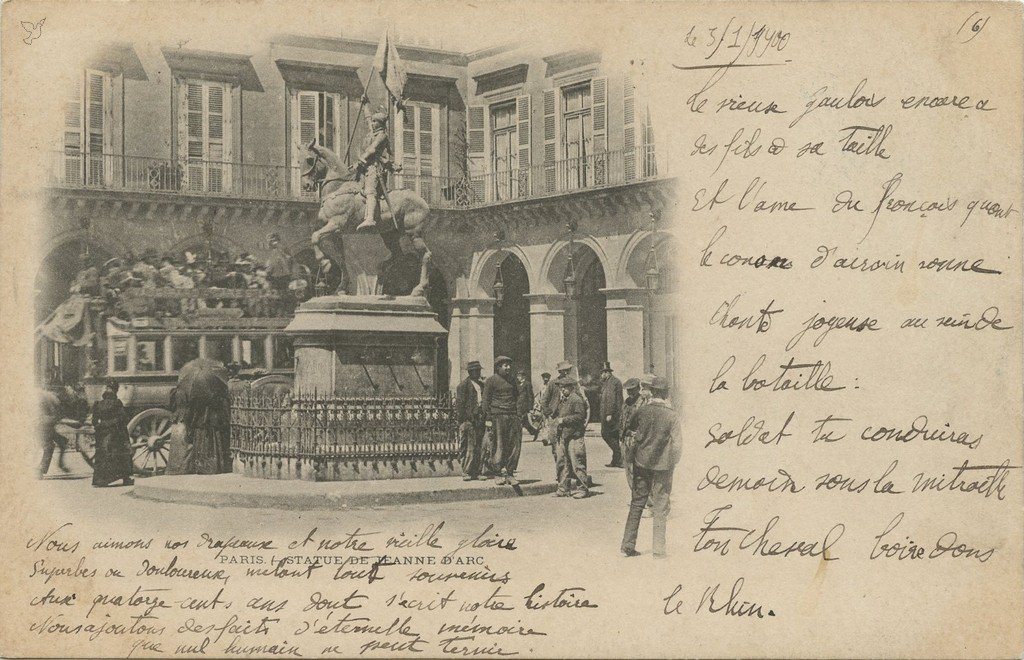 (6)
le 3/1/1900
Le vieux Gaulois encore a
des fils à sa taille
Et l'ame du françois quant
le canon d'airain sonne
Chante joyeuse au sein de
la bataille :
Soldat tu conduiras
demain sous la mitraille
Ton Cheval boire dans
le Rhin.
Nous aimons nos drapeaux et notre vieille gloire
PARIS. — STATUE DE JEANNE D'ARC
Superbes ou douloureux, mêlant tout souvenirs
Aux quatorze cents ans dont s'écrit notre histoire
Nous ajoutons des faits d'éternelle mémoire
que nul humain ne peut ternir.